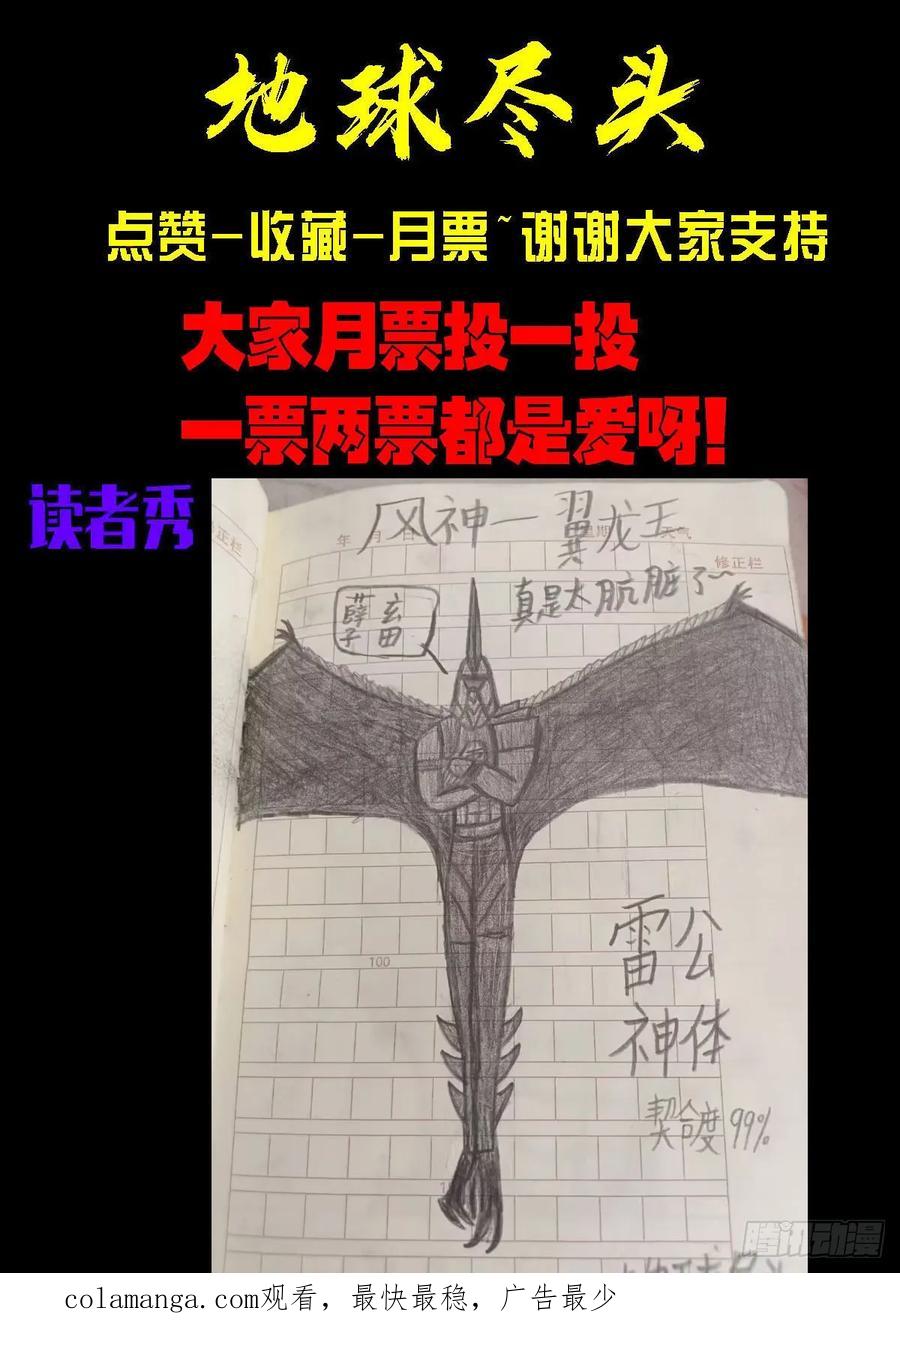 地球尽头
点赞-收藏-月票~谢谢大家支持
大家月票投一投
一票两票都是爱呀!
读者秀
风神一翼龙王
年 月 日 星期 天气
修正栏
修正栏
真是太肮脏了~
孽畜
雷公
神体
契合度99%
100
腾讯动漫
colamanga.com观看，最快最稳，广告最少